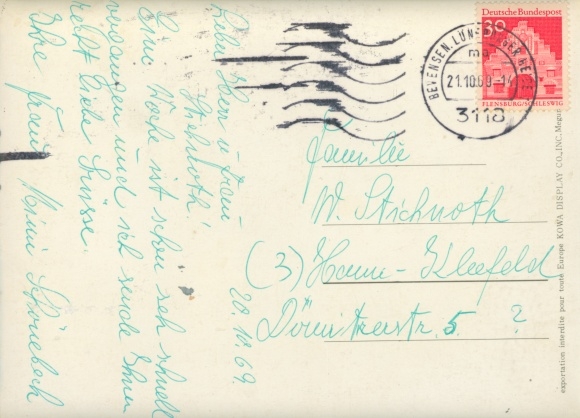 20.10.69.
Lieben Herr u. Frau
Stichnoth!
Eine Woche ist schon sehr schnell
vergangen und ich sende Ihnen
recht liebe Grüsse.
Ihre Frau Mimi Schönebeck
Deutsche Bundespost
30
FLENSBURG/SCHLESWIG
BEVENSEN, LÜNEBURGER HEIDE
mg
21.10.69-14
3118
Familie
W. Stichnoth
(3) Hann-Kleefeld
Dömitzerstr. 5. ?
exportation interdite pour toute Europe KOWA DISPLAY CO., INC.